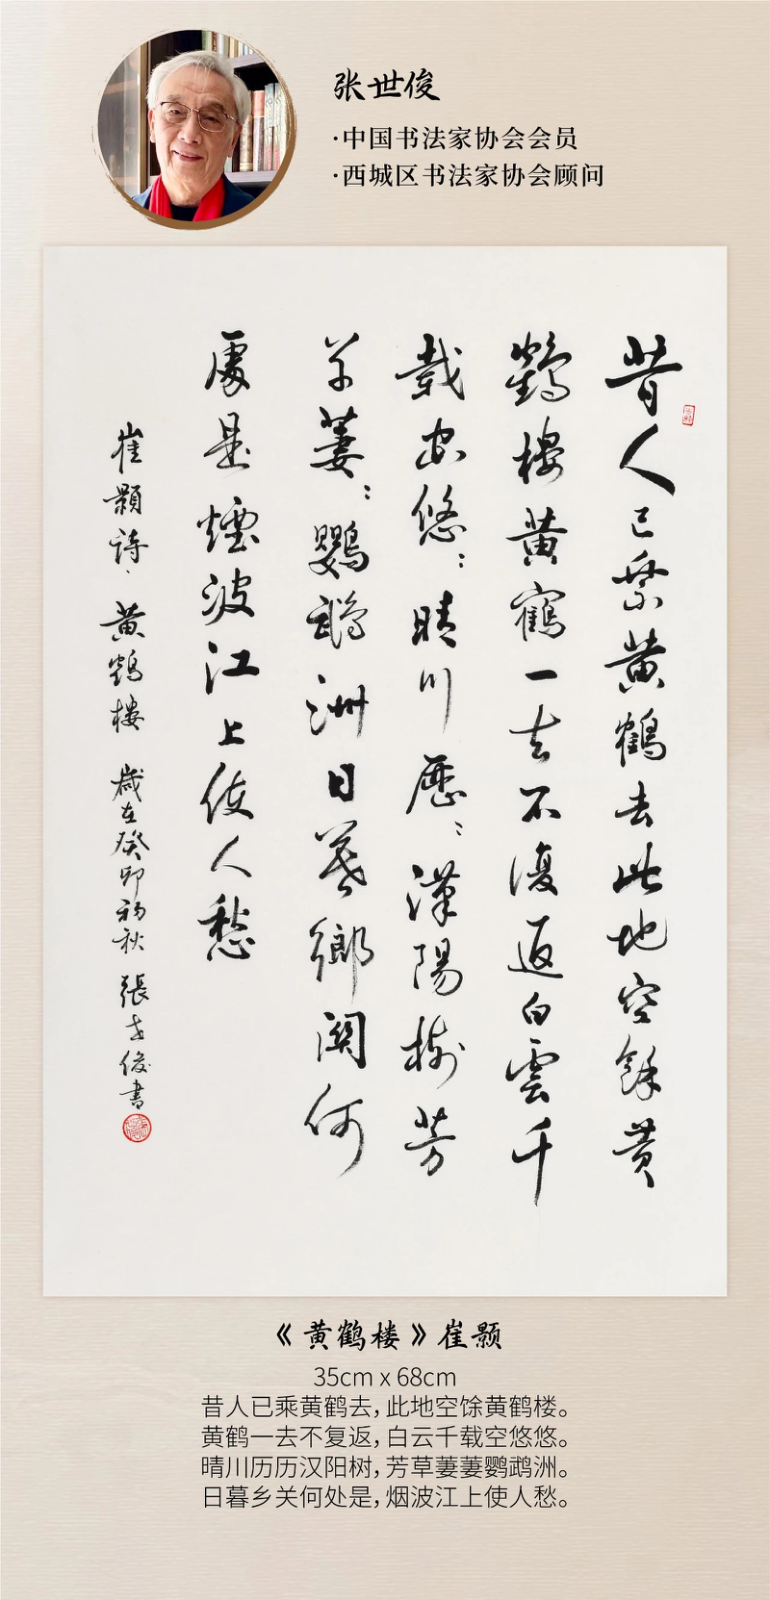 张世俊
·中国书法家协会会员
·西城区书法家协会顾问
昔人已乘黄鶴去此地空餘黄
鶴樓黄鶴一去不復返白雲千
載空悠：晴川歷：漢陽樹芳
草萋：鸚鵡洲日暮鄉關何
處是煙波江上使人愁
崔顥詩、黄鶴樓 歲在癸卯初秋 張世俊書
《黄鹤楼》崔颢
35cm x 68cm
昔人已乘黄鹤去，此地空馀黄鹤楼。
黄鹤一去不复返，白云千载空悠悠。
晴川历历汉阳树，芳草萋萋鹦鹉洲。
日暮乡关何处是，烟波江上使人愁。